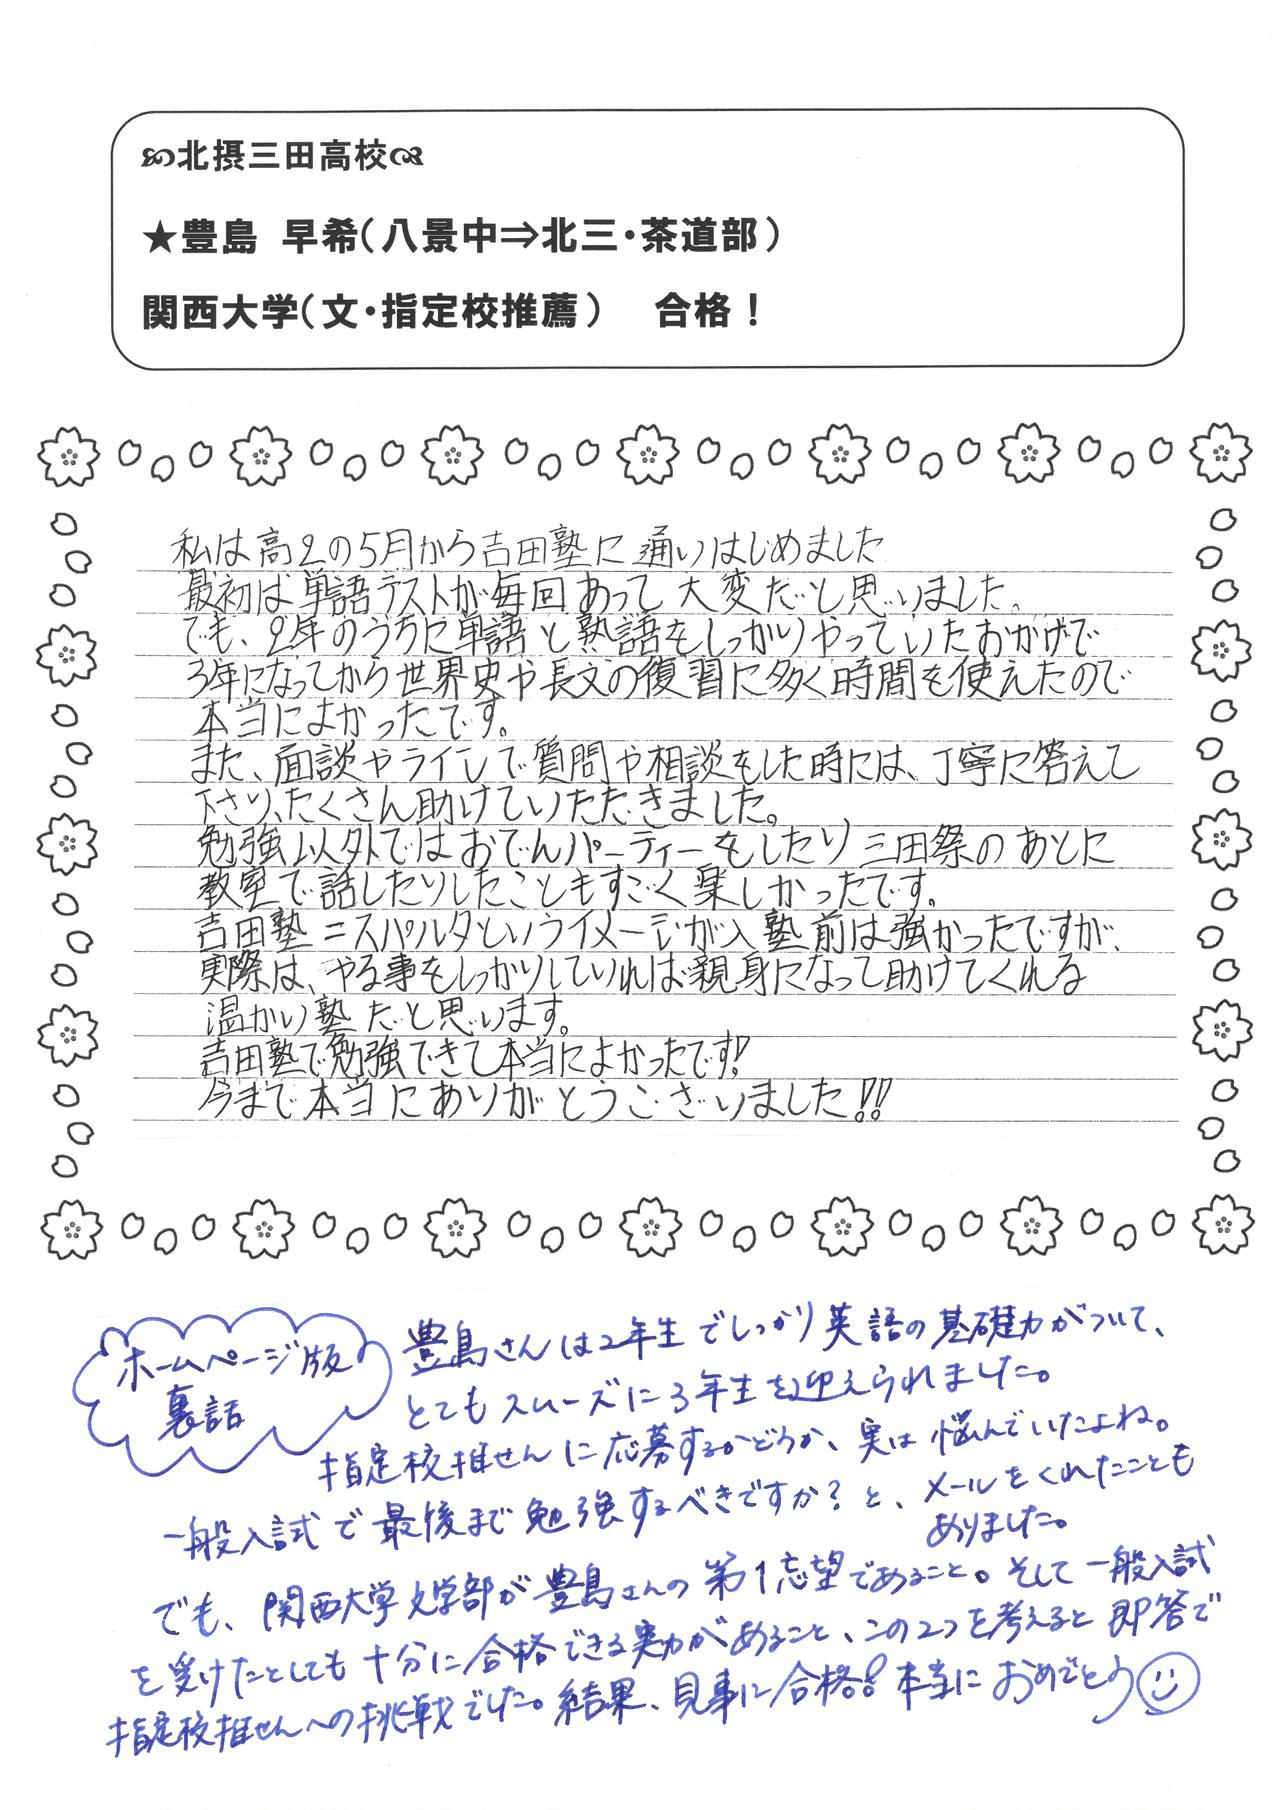 北摂三田高校
★豊島 早希(八景中⇒北三・茶道部)
関西大学(文・指定校推薦) 合格!
私は高2の5月から吉田塾に通いはじめました
最初は単語テストが毎回あって大変だと思いました。
でも、2年のうちに単語と熟語をしっかりやっていたおかげで
3年になってから世界史や長文の復習に多く時間を使えたので
本当によかったです。
また、面談やラインで質問や相談をした時には、丁寧に答えて
下さり、たくさん助けていただきました。
勉強以外ではおでんパーティーをしたり三田祭のあとに
教室で話したりしたこともすごく楽しかったです。
吉田塾=スパルタというイメージが入塾前は強かったですが、
実際は、やる事をしっかりしていれば親身になって助けてくれる
温かい塾だと思います。
吉田塾で勉強できて本当によかったです!
今まで本当にありがとうございました!!
ホームページ版
裏話
豊島さんは2年生でしっかり英語の基礎力がついて、
とてもスムーズに3年生を迎えられました。
指定校推せんに応募するかどうか、実は悩んでいたよね。
一般入試で最後まで勉強するべきですか?と、メールをくれたことも
ありました。
でも、関西大学文学部が豊島さんの第1志望であること。そして一般入試
を受けたとしても十分に合格できる実力があること、この2つを考えると即答で
指定校推せんへの挑戦でした。結果、見事に合格!本当におめでとう